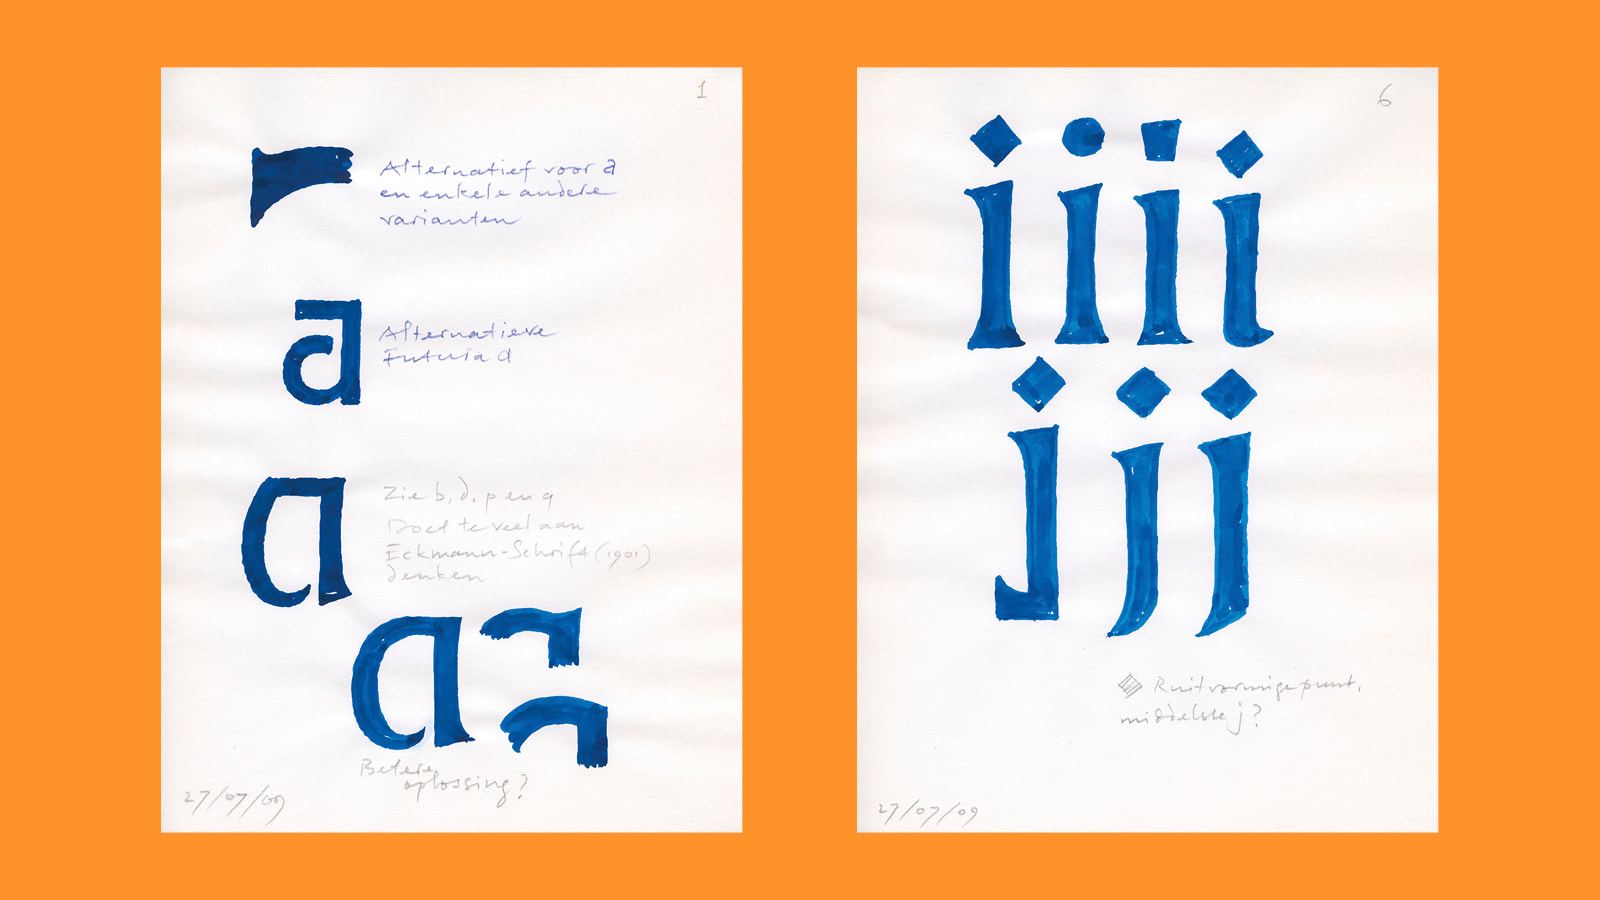 1
Alternatief voor a
en enkele andere
varianten
a
Alternatieve
Futura a
a
Zie b, d, p en q
Doet te veel aan
Eckmann-Schrift (1901)
denken
a
Betere
oplossing?
27/07/09
6
i i i i
j j j
Ruitvormige punt,
middelste j?
27/07/09